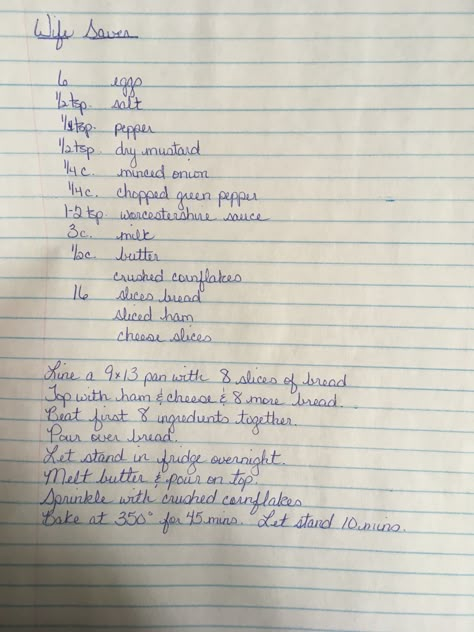 Wife Saver
6 eggs
1/2 tsp. salt
tsp. pepper
1/2 tsp dry mustard
1/4 c. minced onion
1/4 c. chopped green pepper
1-2 tsp. worcestershire sauce
3 c. milk
c. butter
crushed cornflakes
16 slices bread
sliced ham
cheese slices
Line a 9x13 pan with 8 slices of bread
Top with ham & cheese & 8 more bread.
Beat first 8 ingredients together.
Pour over bread.
Let stand in fridge overnight.
Melt butter & pour on top.
Sprinkle with crushed cornflakes
Bake at 350° for 45 mins. Let stand 10 mins.